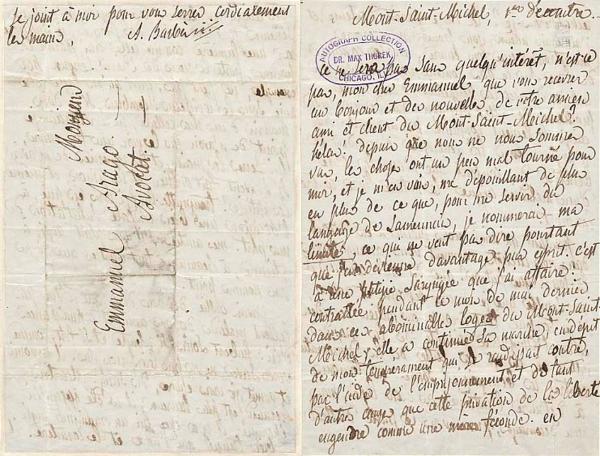 se joint à moi pour vous serrer cordialement
les mains,
A. Barbès
Monsieur
Emmanuel Arago.
Avocat.
Mont-Saint-Michel, 1er décembre
AUTOGRAPH COLLECTION
DR. MAX THOREK
CHICAGO, ILL.
Ce ne sera pas sans quelqu'intérêt, n'est-ce
pas, mon cher Emmanuel que vous recevrez
un bonjour et des nouvelles de votre ancien
ami et client du Mont-Saint-Michel.
hélas! depuis que nous ne nous sommes
vus, les choses ont un peu mal tourné pour
moi, et je m'en vais, me dépouillant de plus
en plus de ce que, pour me servir du
langage de Lamennais, je nommerai ma
limite, ce qui ne veut pas dire pourtant
que je devienne davantage pur esprit. c'est
à une phtysie laryngée que j'ai affaire.
contractée pendant le mois de mai dernier
dans ces abominables loges du Mont-Saint-
Michel, elle a continué sa marche, en dépit
de mon tempérament qui se raidissait contre,
par l'aide de l'emprisonnement et de tant
d'autres causes que cette privation de la liberté
engendre comme une mère féconde. en